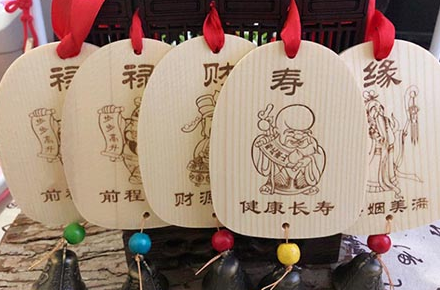 禄
步步高升
前程
禄
步步高升
前程
财
财源
寿
健康长寿
缘
姻美满